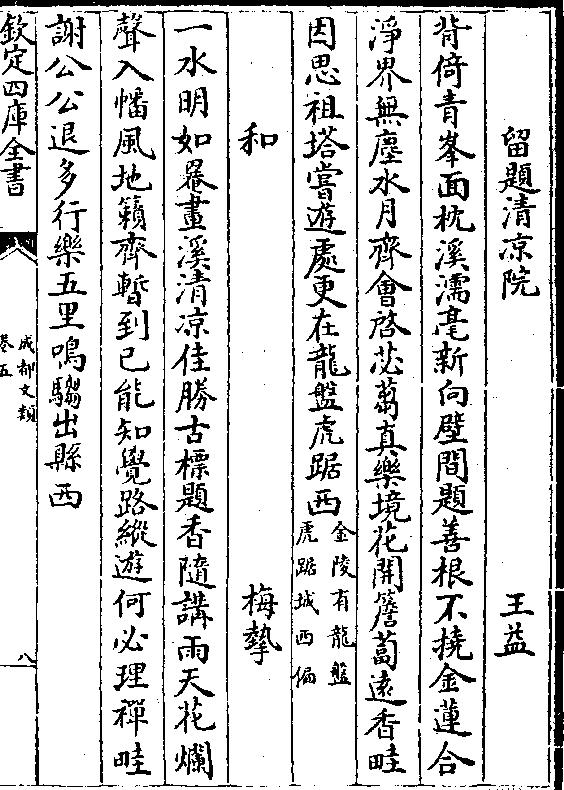 留題清凉院　王益
背倚青峯面枕溪濡毫新向壁間題善根不撓金蓮合
淨界無塵水月齊會啓苾蒭真樂境花開簷蔔遠香畦
因思祖塔嘗遊處更在龍盤虎踞西金陵有龍盤虎踞城西偏
和　梅摯
一水明如罨畫溪清凉佳勝古標題香隨講雨天花爛
聲入幡風地籟齊暫到已能知覺路縱遊何必理禪畦
謝公公退多行樂五里鳴騶出縣西
欽定四庫全書
成都文類
卷五
八